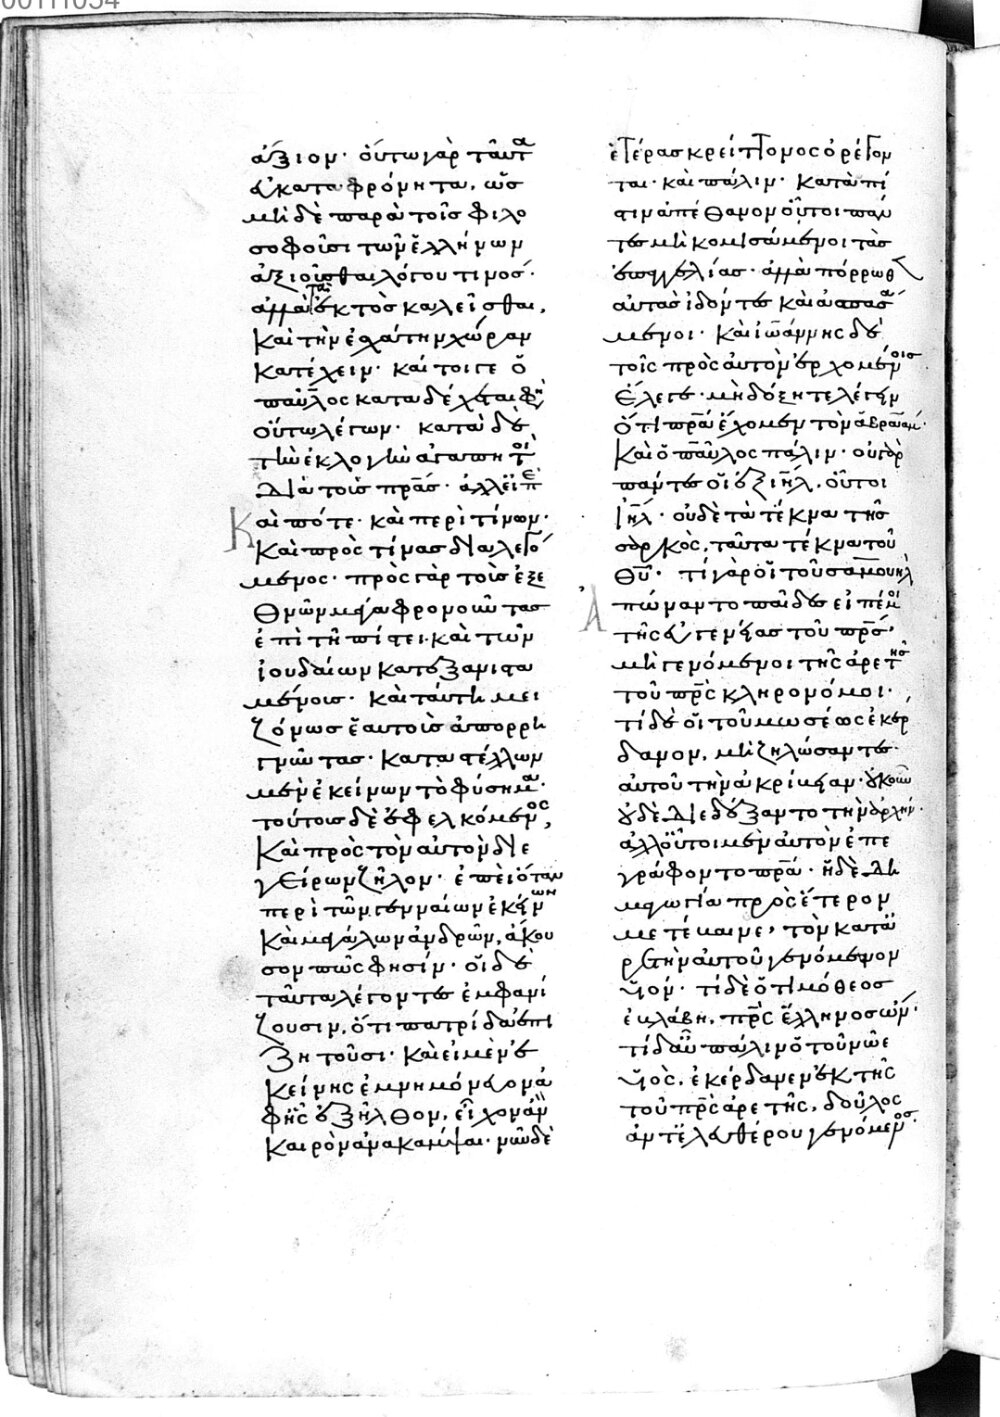 ἄξιον· οὕτω γὰρ ταῦτα
εὐκαταφρόνητα, ὡς
μὴ δὲ παρὰ τοῖς φιλο
σοφοῖσι τῶν ἑλλήνων
ἀξιοῖσθαι λόγου τινός·
ἀλλὰ ἐκτὸς καλεῖσθαι,
καὶ τὴν ἐσχάτην χώραν
κατέχειν· καί τοι γε ὁ
παῦλος καταδέχεται φη
οὕτω λέγων· κατὰ δὲ
τὴν ἐκλογὴν ἀγαπητοὶ
διὰ τοὺς πρας· ἀλλ' εἰπὲ
καὶ πότε· καὶ περὶ τίνων·
καὶ πρὸς τίνας διαλεγό
μενος· πρὸς γὰρ τοὺς ἐξ ἐ
θνῶν μέγα φρονοῦντας
ἐπὶ τῇ πίστει· καὶ τῶν
ἰουδαίων κατεξανιστα
μένοις· καὶ ταύτῃ μει
ζόνως ἑαυτοὺς ἀπορρη
γνῦντας· καταστέλλων
μὲν ἐκείνων τὸ φύσημα·
τούτους δὲ ἐφελκόμενος,
καὶ πρὸς τὸν αὐτὸν δι
εγείρων ζῆλον· ἐπεὶ ὅταν
περὶ τῶν γενναίων ἐκείνων
καὶ μεγάλων ἀνδρῶν, ἄκου
σον πῶς φησίν· οἱ δὲ
ταῦτα λέγοντες ἐμφανί
ζουσιν, ὅτι πατρίδα ἐπι
ζητοῦσι· καὶ εἰ μὲν ἐ
κείνης ἐμνημόνευον ἀ
φ' ἧς ἐξῆλθον, εἶχον ἂν
καιρὸν ἀνακάμψαι· νῦν δὲ
ἑτέρας κρείττονος ὀρέγον
ται· καὶ πάλιν· κατὰ πί
στιν ἀπέθανον οὗτοι πάν
τες μὴ κομισάμενοι τὰς
ἐπαγγελίας· ἀλλὰ πόρρωθ
αὐτὰς ἰδόντες καὶ ἀσπασά
μενοι· καὶ ἰωάννης δὲ
τοῖς πρὸς αὐτὸν ἐρχομένοις
ἔλεγε· μὴ δόξητε λέγειν
ὅτι πρα ἔχομεν τὸν ἀβραάμ·
καὶ ὁ παῦλος πάλιν· οὐ γὰρ
πάντες οἱ ἐξ ιηλ, οὗτοι
ιηλ· οὐδὲ τὰ τέκνα τῆς
σαρκὸς, ταῦτα τέκνα τοῦ
θυ· τί γὰρ οἱ τοῦ σαμουὴλ
πώναντο παῖδες εἰπέ μοι
τῆς εὐγενείας τοῦ πρς·
μὴ γενόμενοι τῆς ἀρετῆς
τοῦ πρς κληρονόμοι·
τί δὲ οἱ τοῦ μωσέως ἐκέρ
δανον, μὴ ζηλώσαντες
αὐτοῦ τὴν ἀκρίβειαν· οὐκοῦν
οὐδὲ διεδέξαντο τὴν ἀρχήν·
ἀλλ' οὗτοι μὲν αὐτὸν ἐπε
γράφοντο πρα· ἡ δὲ δη
μαγωγία πρὸς ἕτερον
μετέβαινε, τὸν κατὰ ἀ
ρετὴν αὐτοῦ γενόμενον
υἱόν· τί δὲ ὁ τιμόθεος
ἐβλάβη, πρς ἕλληνος ὤν·
τί δ' αὖ πάλιν ὁ τοῦ νῶε
υἱὸς, ἐκέρδανεν ἐκ τῆς
τοῦ πρς ἀρετῆς, δοῦλος
ἀντ' ἐλευθέρου γενόμενος·